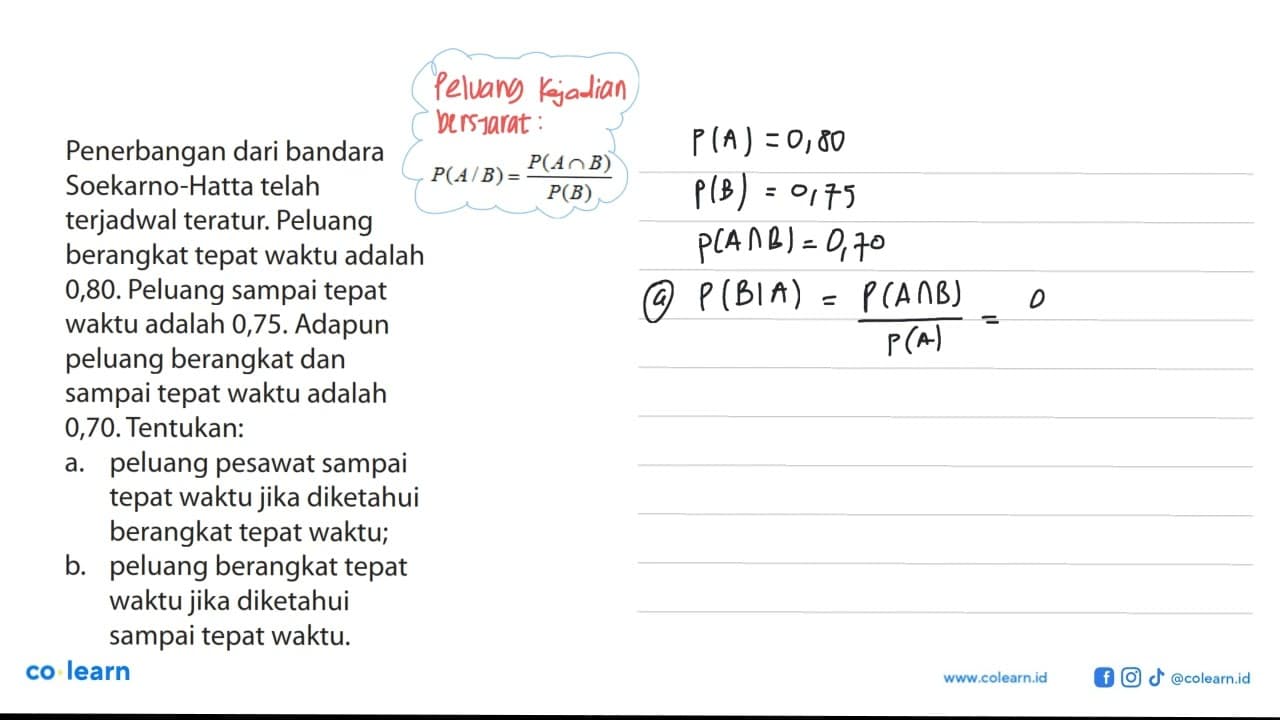 Peluang Kejadian
bersyarat:
P(A/B) = P(A∩B) / P(B)
Penerbangan dari bandara
Soekarno-Hatta telah
terjadwal teratur. Peluang
berangkat tepat waktu adalah
0,80. Peluang sampai tepat
waktu adalah 0,75. Adapun
peluang berangkat dan
sampai tepat waktu adalah
0,70. Tentukan:
a. peluang pesawat sampai
tepat waktu jika diketahui
berangkat tepat waktu;
b. peluang berangkat tepat
waktu jika diketahui
sampai tepat waktu.
P(A) = 0,80
P(B) = 0,75
P(A∩B) = 0,70
a P(B|A) = P(A∩B) / P(A) = 0
co learn
www.colearn.id
@colearn.id